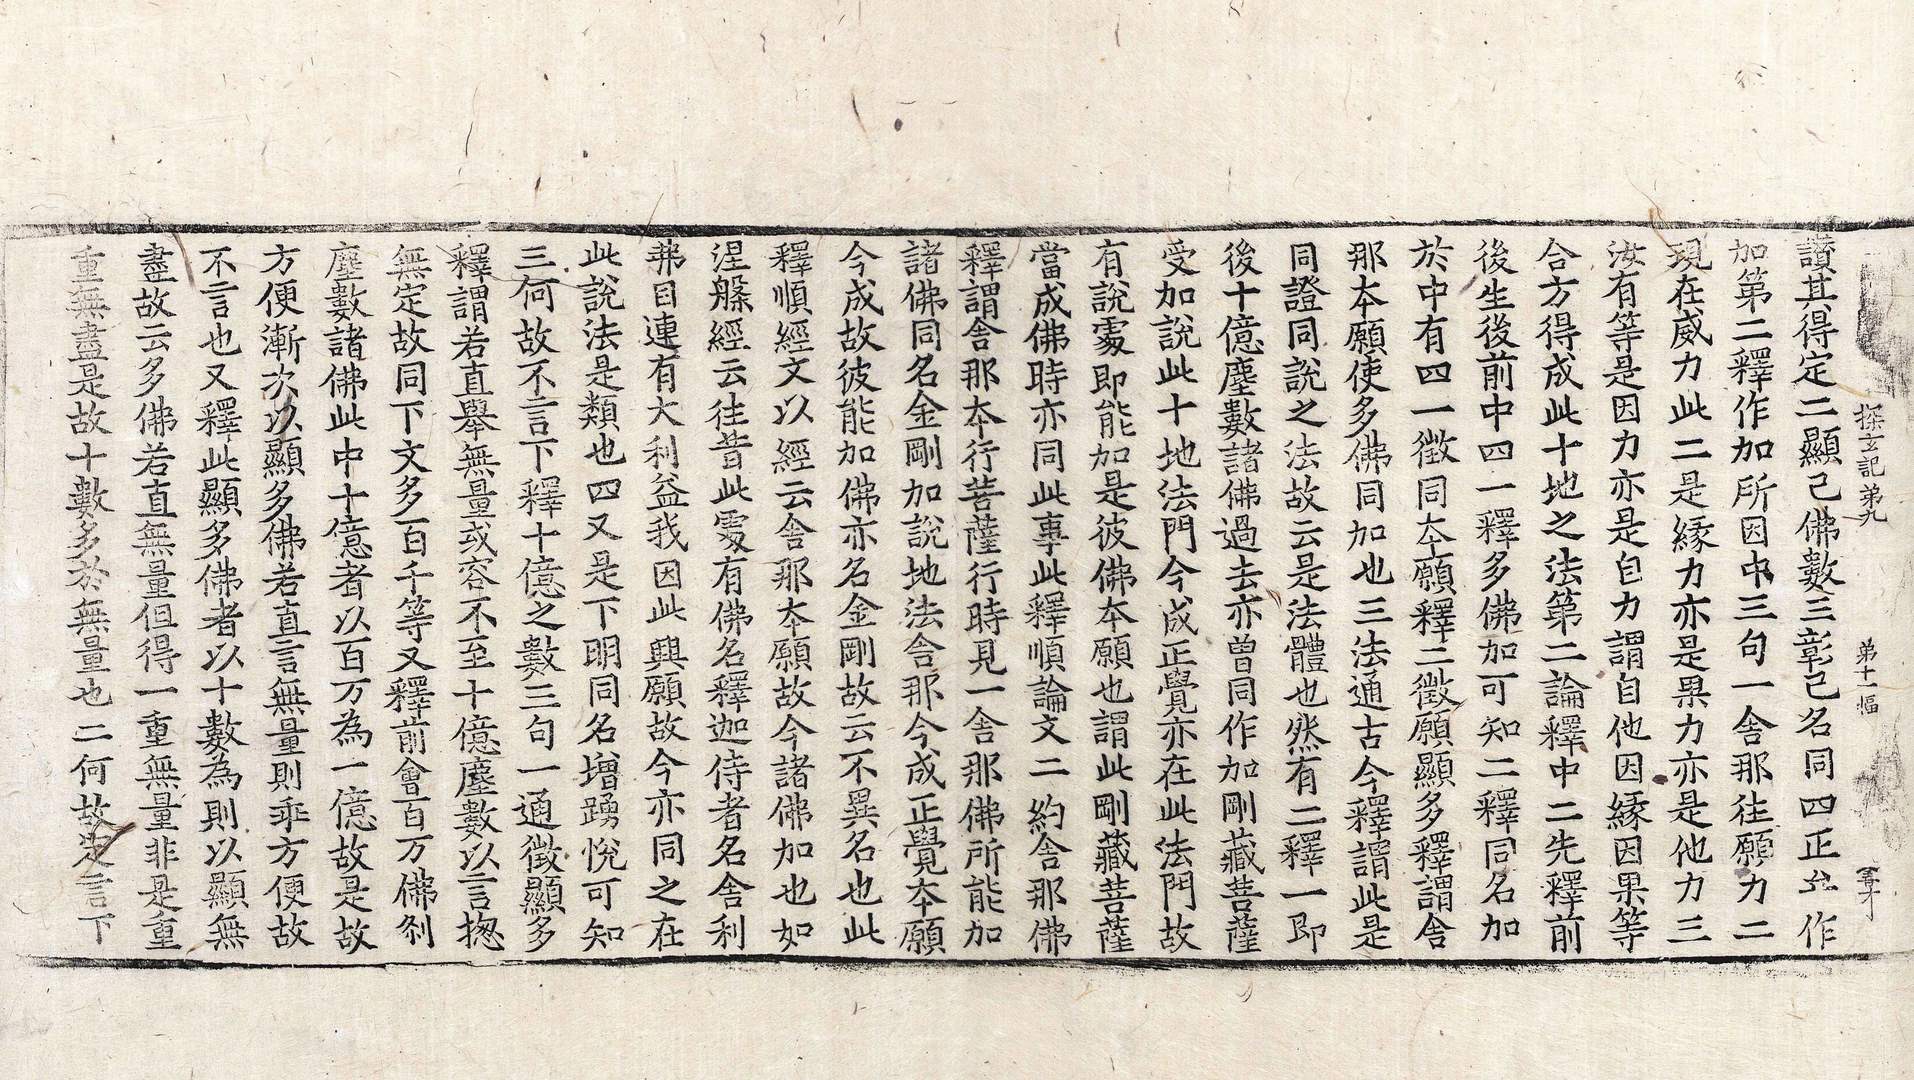 探玄記第九 第十一幅
讃其得定二顯己佛數三彰己名同四正㘴作
加第二釋作加所因中三句一舍那往願力二
現在威力此二是縁力亦是果力亦是他力三
汝有等是因力亦是自力謂自他因縁因果等
合方得成此十地之法第二論釋中二先釋前
後生後前中四一釋多佛加可知二釋同名加
於中有四一徵同夲願釋二徵願顯多釋謂舎
那夲願使多佛同加也三法通古今釋謂此是
同證同説之法故云是法體也然有二釋一即
後十億塵數諸佛過去亦曽同作加剛藏菩薩
受加說此十地法門今成正覺亦在此法門故
有說處即能加是彼佛夲願也謂此剛藏菩薩
當成佛時亦同此事此釋順論文二約舎那佛
釋謂舎那夲行菩薩行時見一舎那佛所能加
諸佛同名金剛加説地法舎那今成正覺夲願
今成故彼能加佛亦名金剛故云不異名也此
釋順經文以經云舎那夲願故今諸佛加也如
涅槃經云往昔此處有佛名釋迦侍者名舎利
弗目連有大利益我因此興願故今亦同之在
此説法是類也四又是下明同名增踴悅可知
三何故不言下釋十億之數三句一通徵顯多
釋謂若直舉無量或容不至十億塵數以言揔
無定故同下文多百千等又釋前會百万佛刹
塵數諸佛此中十億者以百万為一億故是故
方便漸次以顯多佛若直言無量則乖方便故
不言也又釋此顯多佛者以十數為則以顯無
盡故云多佛若直無量但得一重無量非是重
重無盡是故十數多於無量也二何故定言下